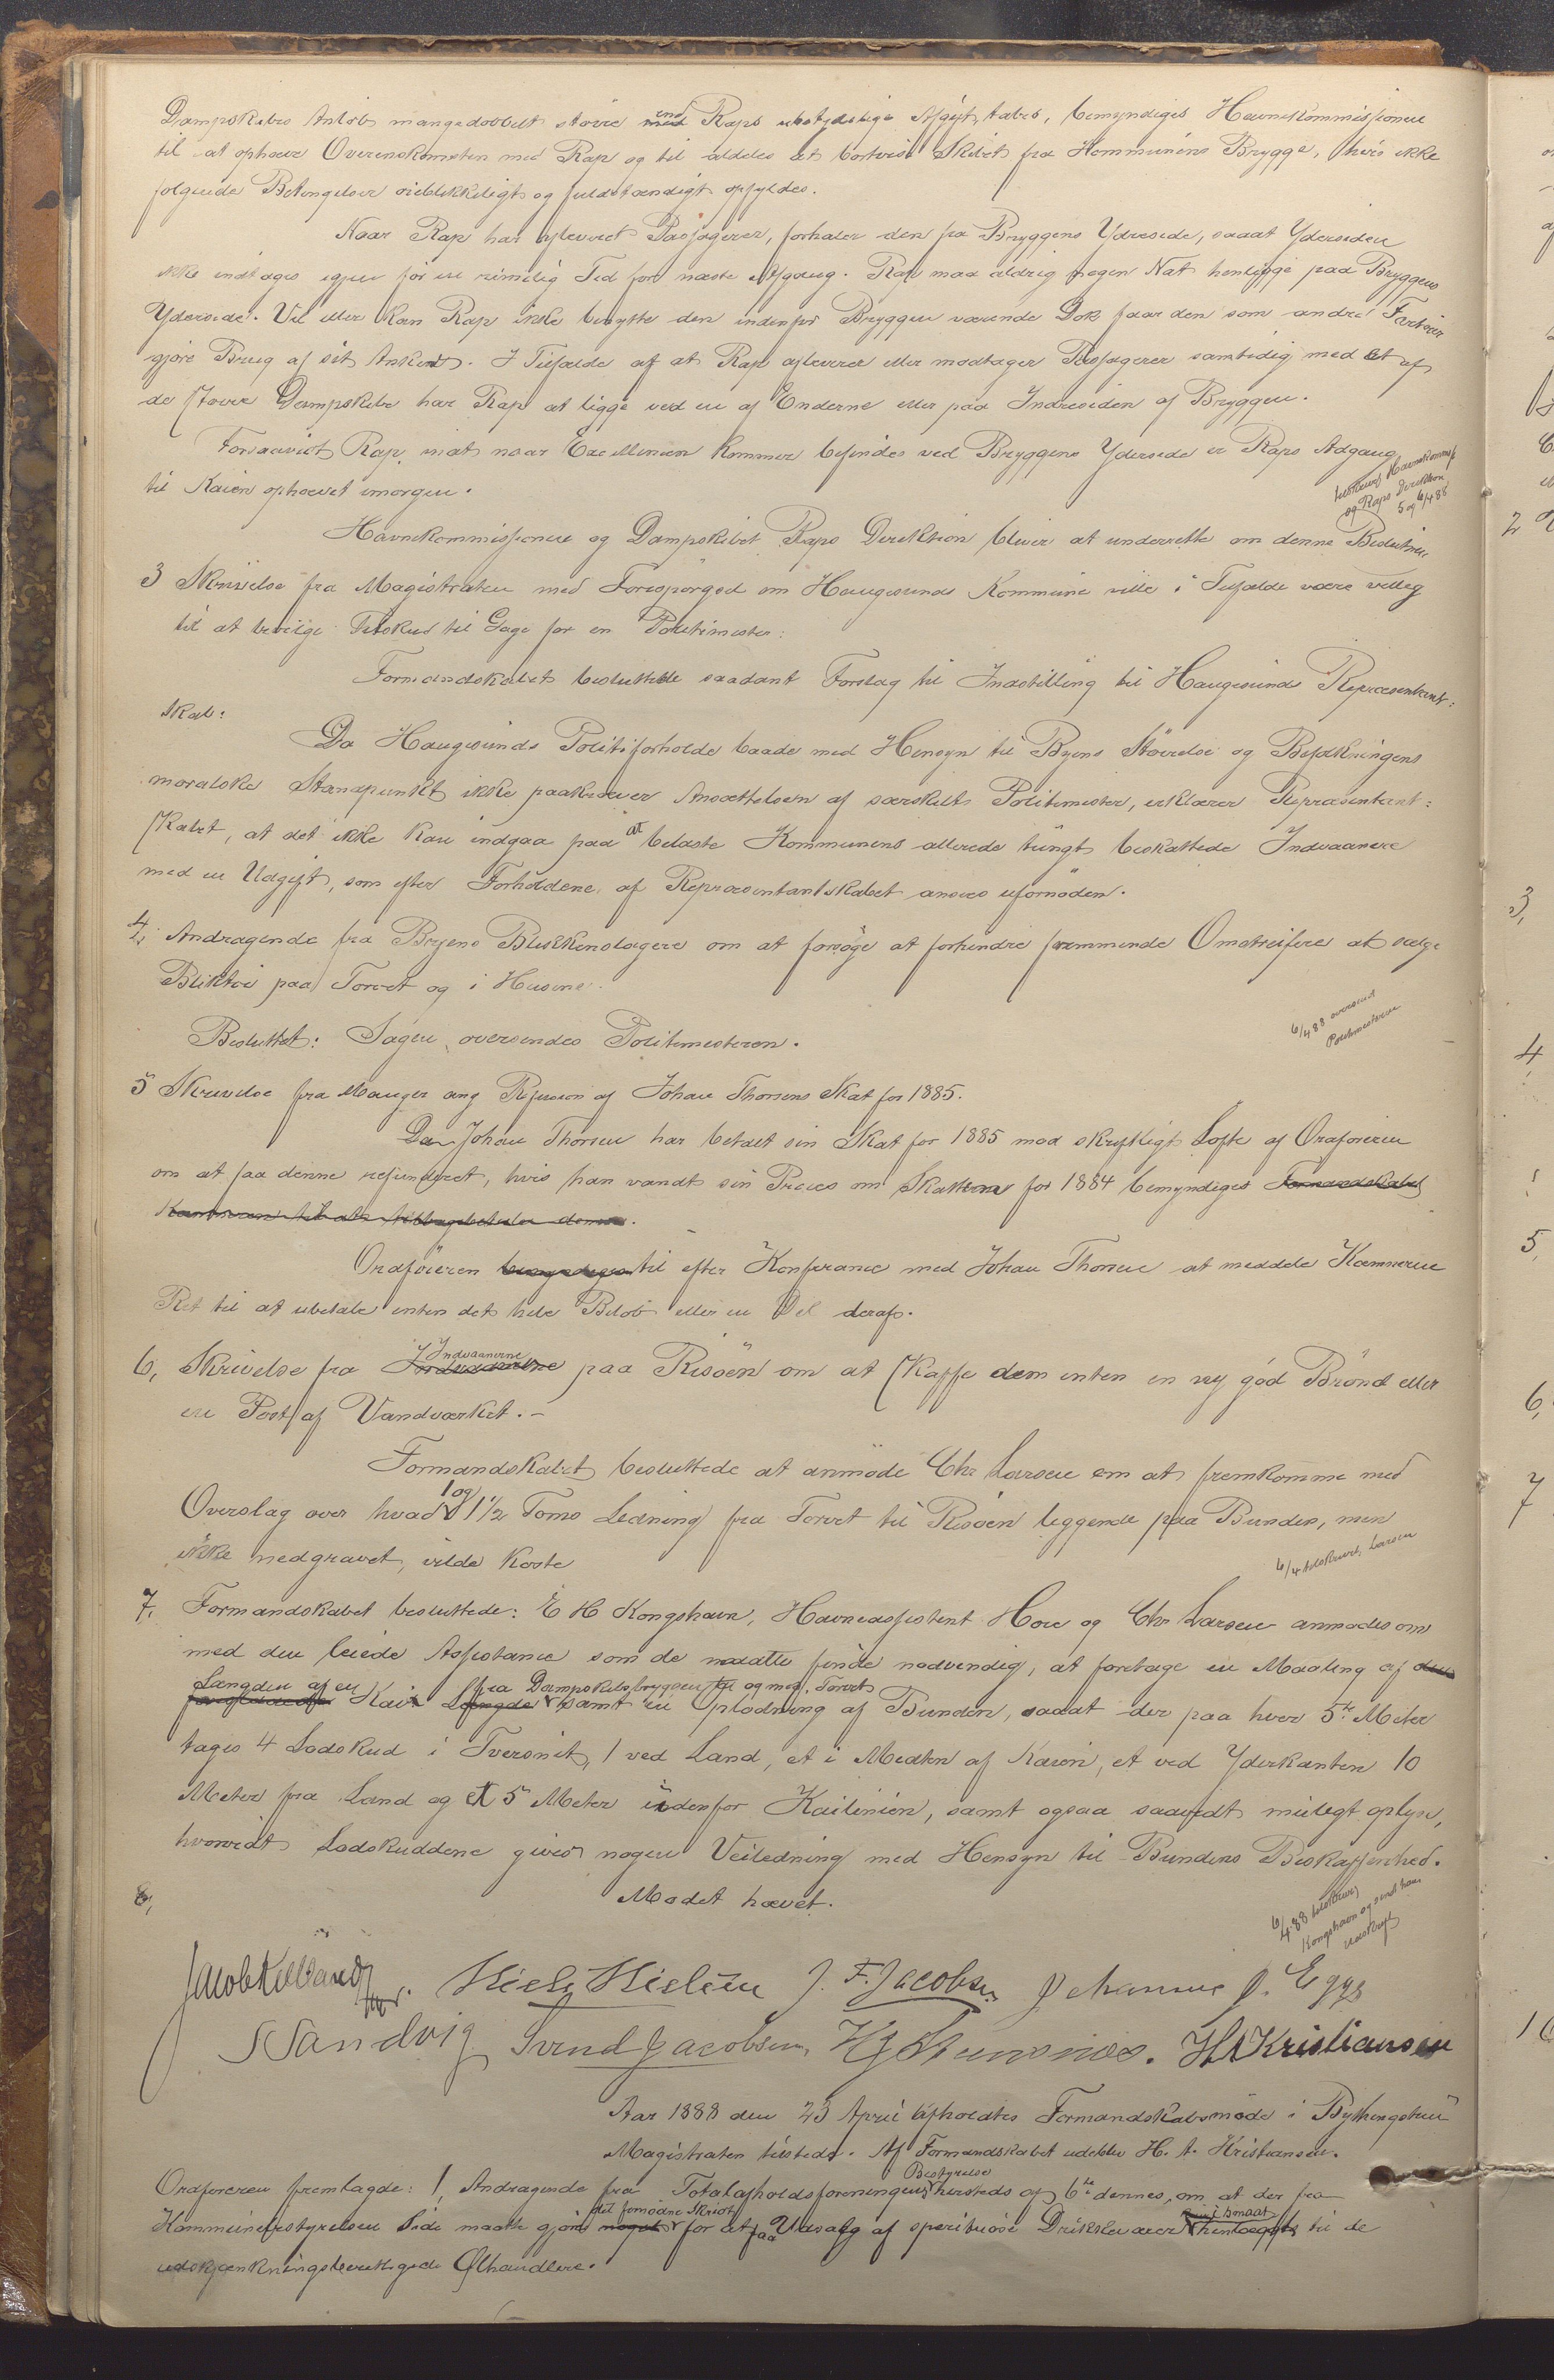 Dampskibes Anløb mangedobbelt større end Raps ubetydelige Afgift tabes, bemyndiges Havnekommissionen
til at ophæve Overenskomsten med Rap og til aldeles at bortvise Skibet fra Kommunens Brygge, hvis ikke
følgende Betingelser øieblikkeligt og fuldstændigt opfyldes.
Naar Rap har afleveret Passagerer, forhaler den fra Bryggens Yderside, saaat Ydersiden
ikke indtages igjen før en rimelig Tid for næste Afgang. Rap maa aldrig nogen Nat henligge paa Bryggens
Yderside. Vil eller kan Rap ikke benytte den indenfor Bryggen værende Dok faar den som andre Fartøier
gjøre Brug af sit Anker. I Tilfælde af at Rap afleverer eller modtager Passagerer samtidig med et af
de større Dampskibe har Rap at ligge ved en af Enderne eller paa Indresiden af Bryggen.
Forsaavidt Rap inat naar Excellencen kommer befindes ved Bryggens Yderside er Raps Adgang
til Kaien ophævet imorgen.
tilskrevet Havnekommis
og Raps Direktion
5 og 6/4 88
Havnekommissionen og Dampskibet Raps Direktion bliver at underrette om denne Beslutning
3 Skrivelse fra Magistraten med Forespørgsel om Haugesunds Kommune ville i Tilfælde være villig
til at bevilge Tilskud til Gage for en Politimester:
Formandskabet besluttede saadant Forslag til Indstilling til Haugesunds Repræsentant:
skab:
Da Haugesunds Politiforholde baade med Hensyn til Byens Størrelse og Befolkningens
moralske Standpunkt ikke paakræver Ansættelsen af særskilt Politimester, erklærer Repræsentant:
skabet, at det ikke kan indgaa paa at belaste Kommunens allerede tungt beskattede Indvaanere
med en Udgift, som efter Forholdene af Repræsentantskabet ansees ufornøden.
4, Andragende fra Byens Blikkenslagere om at forsøge at forhindre fremmende Omstreifere at sælge
Bliktøi paa Torvet og i Husene.
6/4 88 oversendt
Politimesteren
Besluttet: Sagen oversendes Politimesteren.
5 Skrivelse fra Mauger ang Refusion af Johan Thorsens Skat for 1885.
Da Johan Thorsen har betalt sin Skat for 1885 mod skriftligt Løfte af Ordføreren
om at faa denne refunderet, hvis han vandt sin Proces om Skatten for 1884 bemyndiges Formandskabet
Kæmneren til at tilbagebetale denne.
Ordføreren bemyndiges til efter Konferance med Johan Thorsen at meddele Kæmneren
Ret til at ubetale enten det hele Beløb eller en Del deraf.
6, Skrivelse fra Indvaanerne paa Risøen om at skaffe dem enten en ny god Brønd eller
en Post af Vandværket.-
Formandskabet besluttede at anmode Chr Larsen om at fremkomme med
Overslag over hvad 1 og 1 1/2 Toms Ledning fra Torvet til Risøen liggende paa Bunden, men
ikke nedgravet, vilde koste
6/4 tilskrevet Larsen
7, Formandskabet besluttede: E H Kongshavn, Havneassistent Hoie og Chr Larsen anmodes om
med den leiede Assistance som de maatte finde nødvendig, at foretage en Maaling af den
Længden af en Kai fra Dampskibsbryggen til og med Torvet
samt en Oplodning af Bunden, saaat der paa hver 5te Meter
tages 4 Lodskud i Tversnit, 1 ved Land, et i Midten af Kaien, et ved Yderkanten 10
Meter fra Land og et 5 Meter udenfor Kailinien, samt ogsaa saavidt muligt oplyse,
hvorvidt Lodskuddene giver nogen Veiledning med Hensyn til Bundens Beskaffenhed.
8, Mødet hævet.
6/4 88 tilskrevet
Kongshavn og sendt ham
Udskrift
Jacob Kielland jr. Niels Nielsen J. F. Jacobsen Johannes J. Egge
S Sandvig Svend Jacobsen. H. A. Kristiansen
Aar 1888 den 23 April afholdtes Formandskabsmøde i Bythingstuen
Magistraten tilstede. Af Formandskabet udeblev H. A. Kristiansen.
Ordføreren fremlagde: 1, Andragende fra Totalafholdsforeningens Bestyrelse hersteds af 6te dennes, om at der fra
Kommunebestyrelsen Side maatte gjøres det fornødne Skridt for at faa Udsalg af spirituøse Drikkevarer i smaat henlagt til de
udskjænkningsberettigede Ølhandlere.
2
3,
4
5,
6,
7